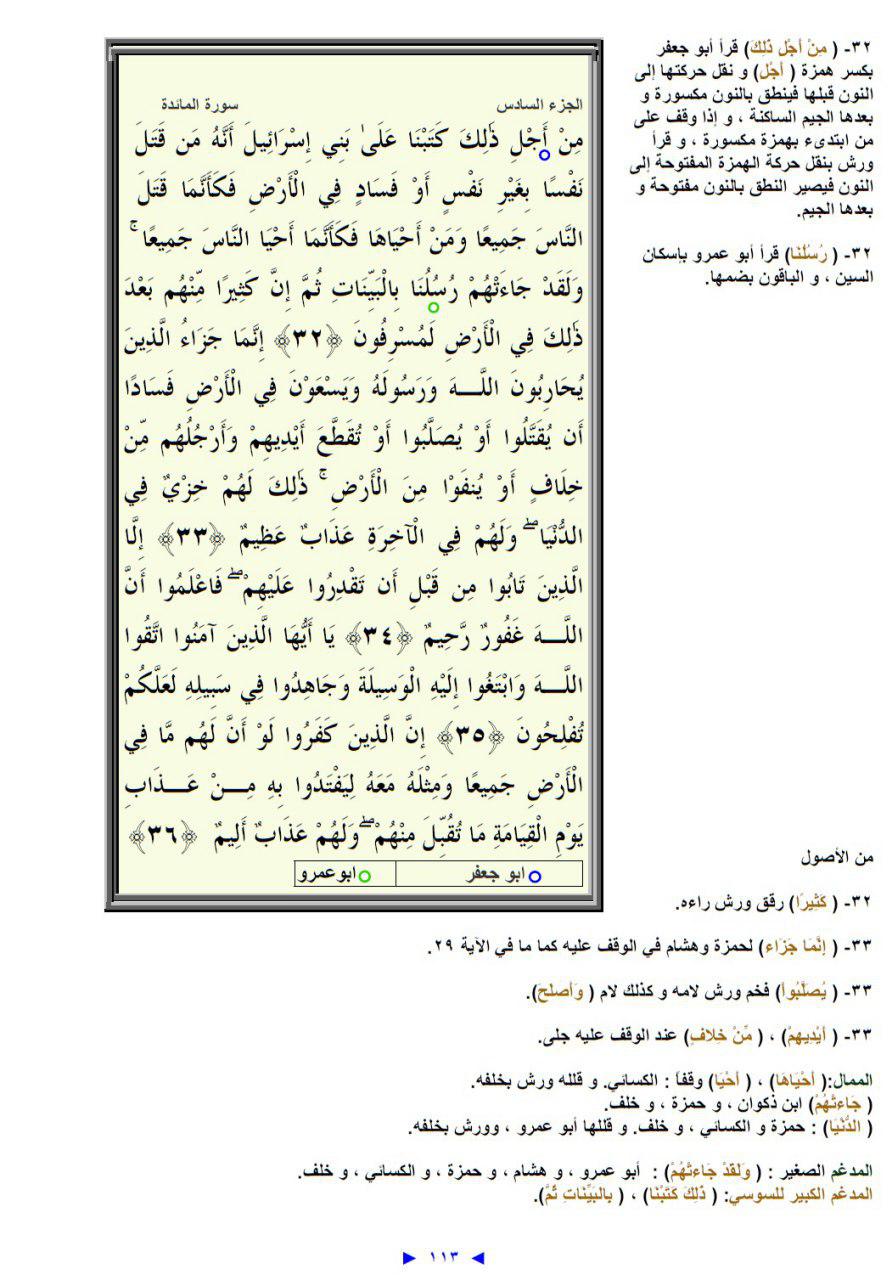 ٣٢- ( مِنْ أَجْلِ ذَٰلِكَ) قرأ أبو جعفر
بكسر همزة ( أَجْلِ) و نقل حركتها إلى
النون قبلها فينطق بالنون مكسورة و
بعدها الجيم الساكنة ، و إذا وقف على
من ابتدىء بهمزة مكسورة ، و قرأ
ورش بنقل حركة الهمزة المفتوحة إلى
النون فيصير النطق بالنون مفتوحة و
بعدها الجيم.
٣٢- ( رُسُلُنَا) قرأ أبو عمرو بإسكان
السين ، و الباقون بضمها.
الجزء السادس سورة المائدة
مِنْ أَجْلِ ذَٰلِكَ كَتَبْنَا عَلَىٰ بَنِي إِسْرَائِيلَ أَنَّهُ مَن قَتَلَ
نَفْسًا بِغَيْرِ نَفْسٍ أَوْ فَسَادٍ فِي الْأَرْضِ فَكَأَنَّمَا قَتَلَ
النَّاسَ جَمِيعًا وَمَنْ أَحْيَاهَا فَكَأَنَّمَا أَحْيَا النَّاسَ جَمِيعًا ۚ
وَلَقَدْ جَاءَتْهُمْ رُسُلُنَا بِالْبَيِّنَاتِ ثُمَّ إِنَّ كَثِيرًا مِّنْهُم بَعْدَ
ذَٰلِكَ فِي الْأَرْضِ لَمُسْرِفُونَ ﴿٣٢﴾ إِنَّمَا جَزَاءُ الَّذِينَ
يُحَارِبُونَ اللَّـهَ وَرَسُولَهُ وَيَسْعَوْنَ فِي الْأَرْضِ فَسَادًا
أَن يُقَتَّلُوا أَوْ يُصَلَّبُوا أَوْ تُقَطَّعَ أَيْدِيهِمْ وَأَرْجُلُهُم مِّنْ
خِلَافٍ أَوْ يُنفَوْا مِنَ الْأَرْضِ ۚ ذَٰلِكَ لَهُمْ خِزْيٌ فِي
الدُّنْيَا ۖ وَلَهُمْ فِي الْآخِرَةِ عَذَابٌ عَظِيمٌ ﴿٣٣﴾ إِلَّا
الَّذِينَ تَابُوا مِن قَبْلِ أَن تَقْدِرُوا عَلَيْهِمْ ۖ فَاعْلَمُوا أَنَّ
اللَّـهَ غَفُورٌ رَّحِيمٌ ﴿٣٤﴾ يَا أَيُّهَا الَّذِينَ آمَنُوا اتَّقُوا
اللَّـهَ وَابْتَغُوا إِلَيْهِ الْوَسِيلَةَ وَجَاهِدُوا فِي سَبِيلِهِ لَعَلَّكُمْ
تُفْلِحُونَ ﴿٣٥﴾ إِنَّ الَّذِينَ كَفَرُوا لَوْ أَنَّ لَهُم مَّا فِي
الْأَرْضِ جَمِيعًا وَمِثْلَهُ مَعَهُ لِيَفْتَدُوا بِهِ مِـنْ عَـذَابِ
يَوْمِ الْقِيَامَةِ مَا تُقُبِّلَ مِنْهُمْ ۖ وَلَهُمْ عَذَابٌ أَلِيمٌ ﴿٣٦﴾
ابو جعفر ابوعمرو
من الأصول
٣٢- ( كَثِيرًا) رقق ورش راءه.
٣٣- ( إِنَّمَا جَزَاء) لحمزة وهشام في الوقف عليه كما ما في الآية ٢٩.
٣٣- ( يُصَلَّبُوا) فخم ورش لامه و كذلك لام ( وَأَصْلَحَ).
٣٣- ( أَيْدِيهِمْ) ، ( مِّنْ خِلافٍ) عند الوقف عليه جلى.
الممال:( أَحْيَاهَا) ، ( أَحْيَا) وقفاً : الكسائي. و قلله ورش بخلفه.
( جَاءتْهُمْ) ابن ذكوان ، و حمزة ، و خلف.
( الدُّنْيَا) : حمزة و الكسائي ، و خلف. و قللها أبو عمرو ، وورش بخلفه.
المدغم الصغير : ( وَلَقَدْ جَاءتْهُمْ) : أبو عمرو ، و هشام ، و حمزة ، و الكسائي ، و خلف.
المدغم الكبير للسوسي: ( ذَٰلِكَ كَتَبْنَا) ، ( بِالبَيِّنَاتِ ثُمَّ).
١١٣